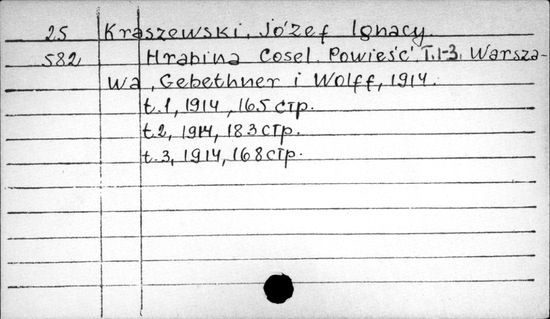 25 Kraszewski, Józef Ignacy.
582 Hrabina Cosel. Powieść. T.1-3. Warsza-
wa, Gebethner i Wolff, 1914.
t.1, 1914, 165 стр.
t.2, 1914, 183 стр.
t.3, 1914, 168 стр.